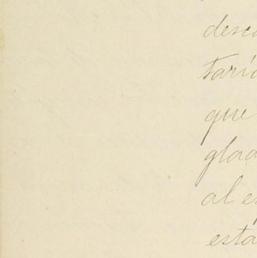 desc
tari
que
glad
al e
está